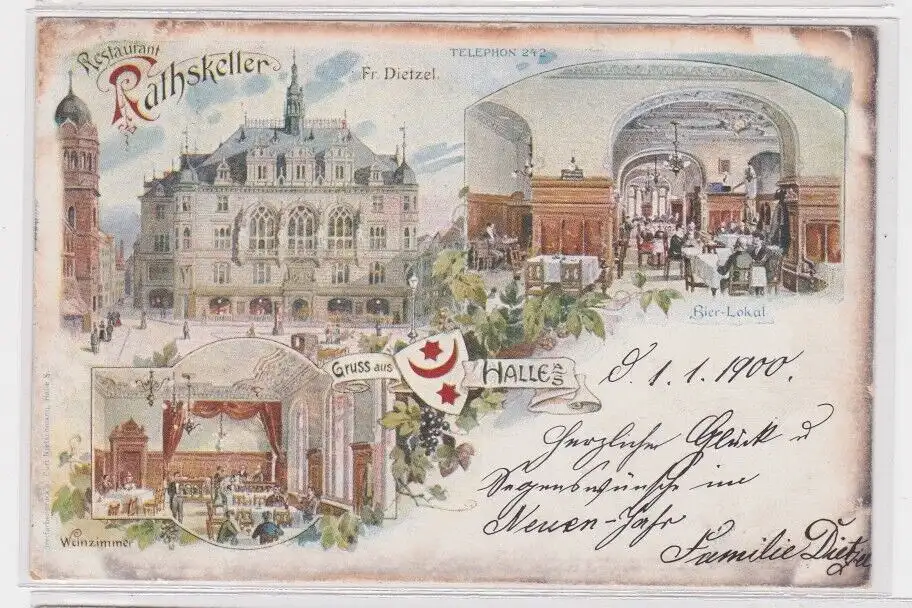 Restaurant
Rathskeller
Fr. Dietzel.
TELEPHON 242
Bier-Lokal
Gruss aus HALLE A/S
Weinzimmer
d. 1. 1. 1900.
Herzliche Glück u
Segenswünsche im
Neuen-Jahr
Familie Dietzel